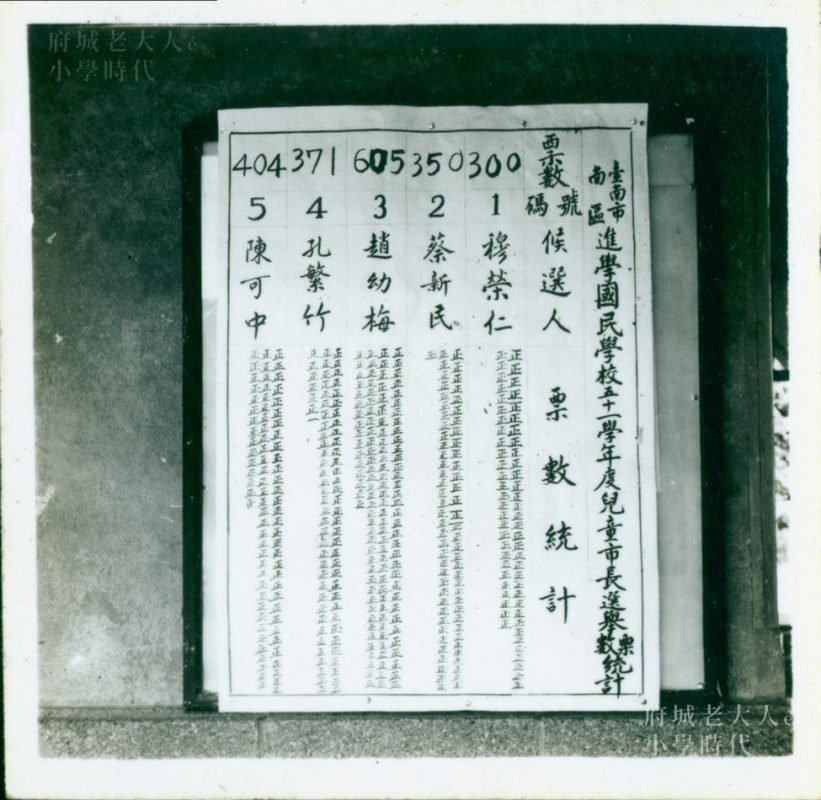 府城老大人ê
小學時代
臺南市南區進學國民學校五十一學年度兒童市長選舉票數統計
票數 號碼 候選人 票數統計
300 1 穆榮仁
350 2 蔡新民
605 3 趙幼梅
371 4 孔繁竹
404 5 陳可中
府城老大人ê
小學時代